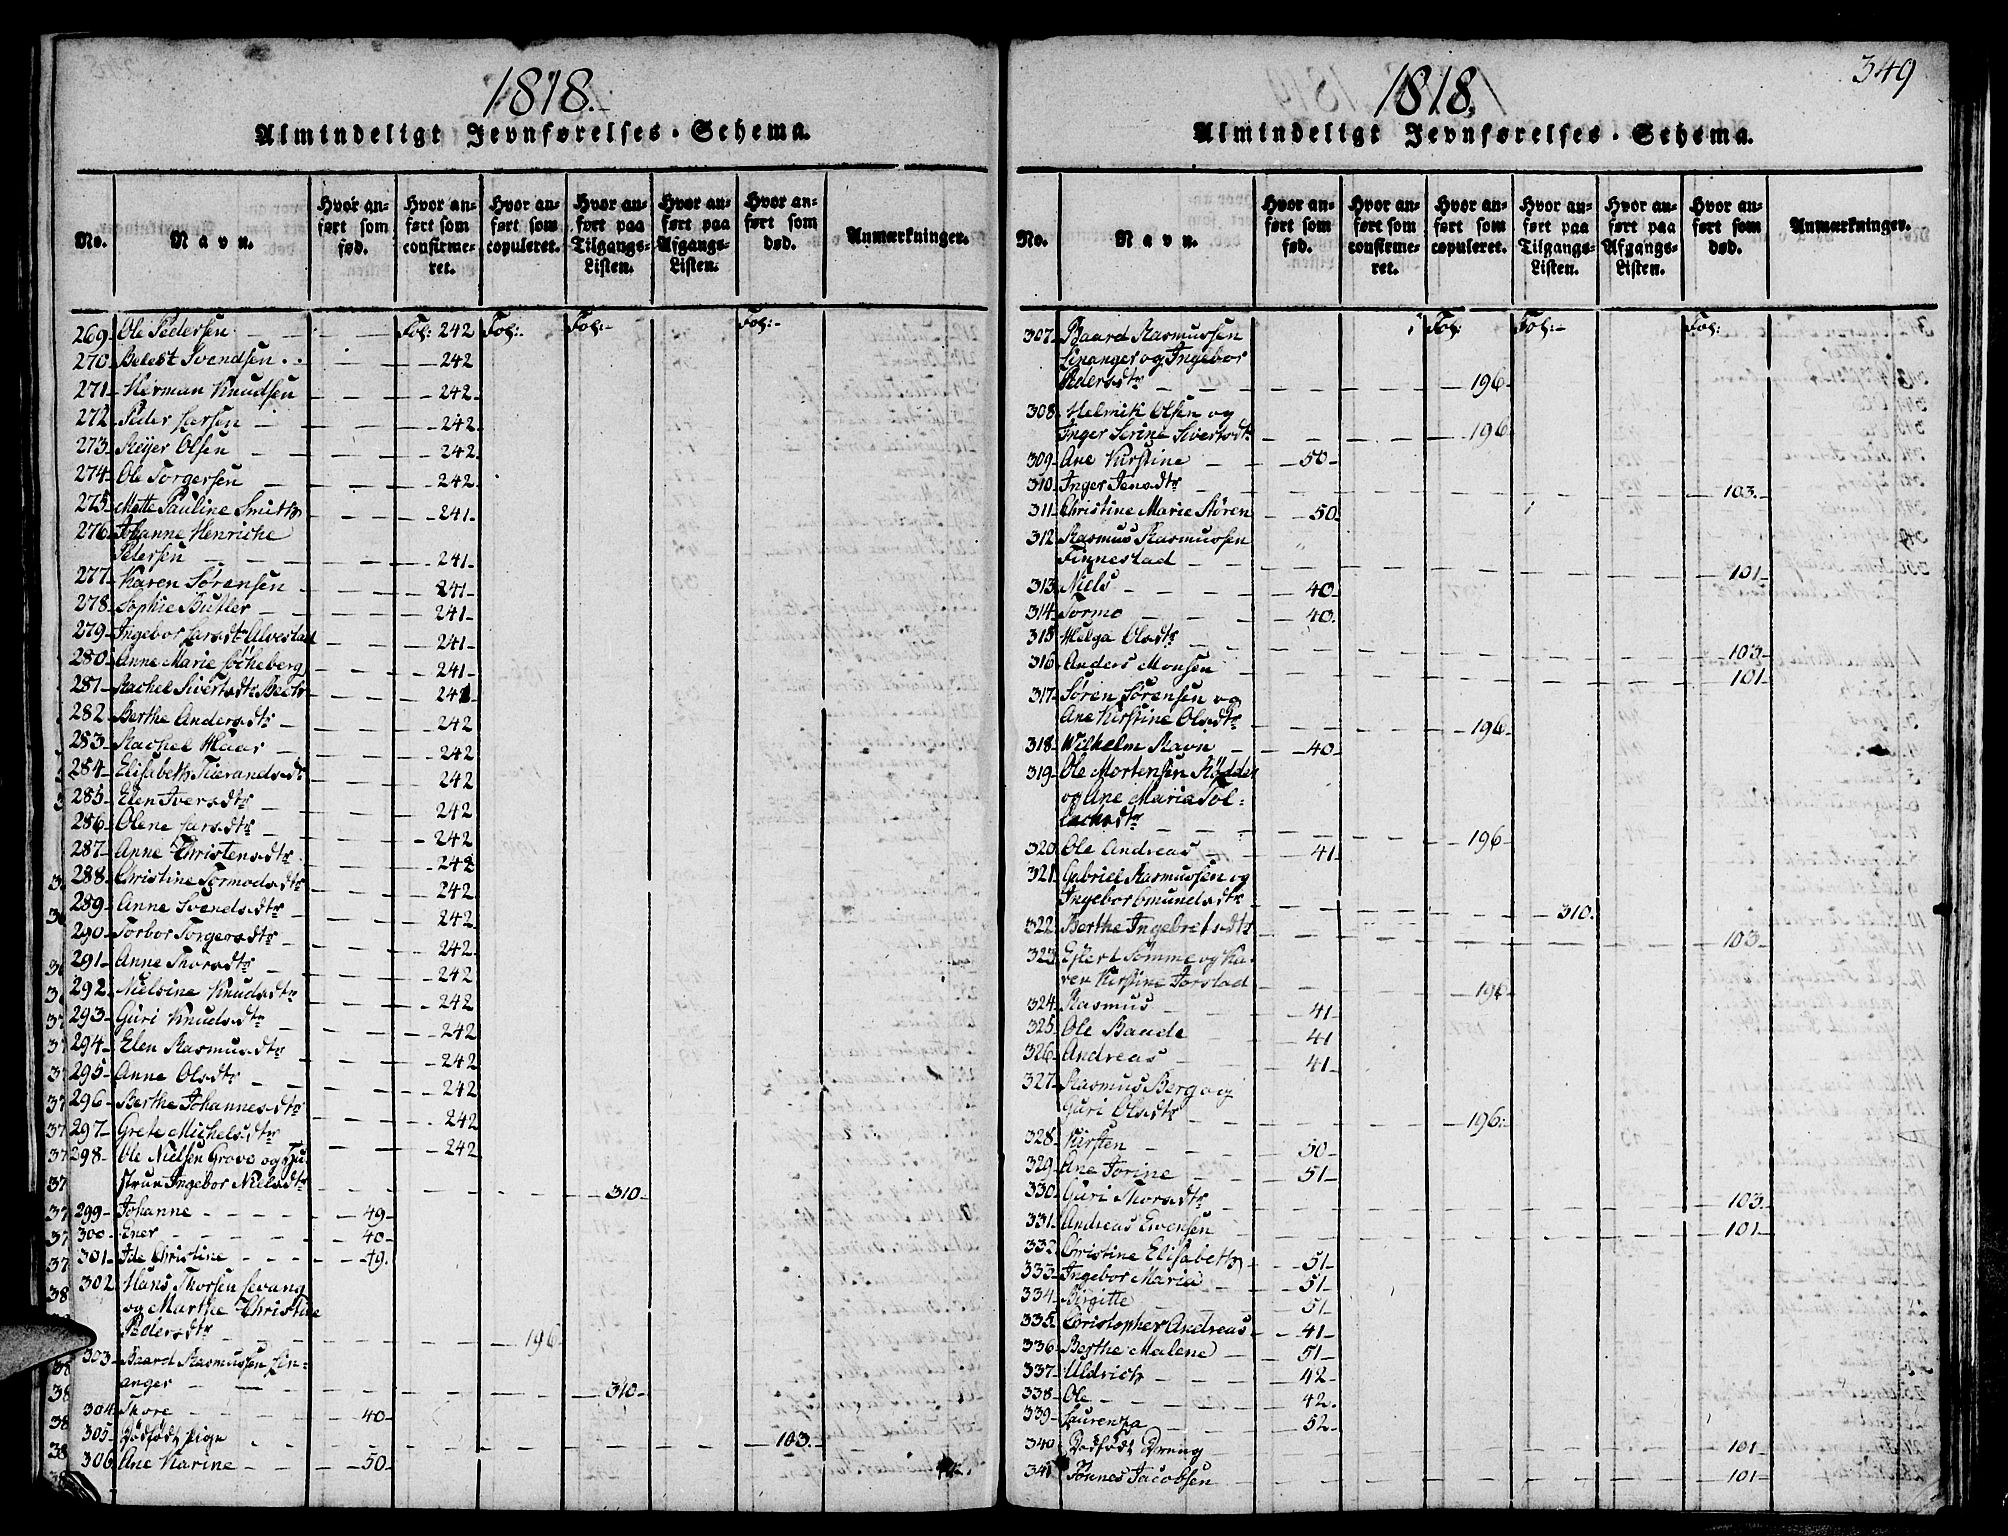 1818.
Almindeligt Jevnførelses-Schema.
No.
Navn.
Hvor anført som fød.
Hvor anført som confirmeret.
Hvor anført som copuleret.
Hvor anført paa Tilgangs-Listen.
Hvor anført paa Afgangs-Listen.
Hvor anført som død.
Anmærkninger.
269 Ole Pedersen Fol: 242 Fol: Fol: Fol:
270 Svendsen 242
271 Herman Knudsen 242
272 Peder Larsen 242
273 Reijer Olsen 242
274 Ole Torgersen 242
275 Mette Pauline Smith 241
276 Johanne Henriche
Petersen 241
277 Karen Sørensen 241
278 Sophie Butler 241
279 Ingebor Larsdtr Alvestad 241
280 Anne Marie 241
281 Rachel Sivertsdtr 241
282 Berthe Andersdtr 242
283 Rachel Haar 242
284 Elisabeth 242
285 Elen Iversdtr 242
286 Olene Larsdtr 242
287 Anne Christensdtr 242
288 Christine Tormodsdtr 242
289 Anne Svendsdtr 242
290 Torbor Torgersdtr 242
291 Anne Thorsdtr 242
292 Nielsine Knudsdtr 242
293 Guri Knudsdtr 242
294 Elen Rasmusdtr 242
295 Anne Olsdtr 242
296 Berthe Johannesdtr 242
297 Grete Michelsdtr 242
298 Ole Nielsen Grove og Hu-
strue Ingebor Nielsdtr 310
299 Johanne 49
300 Ener 40
301 Ide Christine 49
302 Hans Thorsen Levang
og Marthe Christine
Pedersdtr 196
303 Baard Rasmussen Lin-
anger 310
304 Thore 40
305 Dødfødt pige 103
306 Ane Karine 50
349
1818.
Almindeligt Jevnførelses-Schema.
No.
Navn.
Hvor anført som fød.
Hvor anført som confirmeret.
Hvor anført som copuleret.
Hvor anført paa Tilgangs-Listen.
Hvor anført paa Afgangs-Listen.
Hvor anført som død.
Anmærkninger.
307 Baard Rasmussen Fol: Fol: Fol:
Linanger og Ingebor
Pedersdtr 196
308 Helmik Olsen og
Inger Serine Sivertsdtr 196
309 Ane Kirstine 50
310 Inger Jensdtr 103
311 Christine Marie Støren 50
312 Rasmus Rasmussen
Finnestad 101
313 Niels 40
314 Tormo 40
315 Helga Olsdtr 103
316 Anders Monsen 101
317 Søren Sørensen og
Ane Kirstine Olsdtr 196
318 Wilhelm Ravn 40
319 Ole Mortensen
og Ane Maria Tol-
lachsdtr 196
320 Ole Andreas 41
321 Gabriel Rasmussen og
Ingebor Omundsdtr 310
322 Berthe Ingebretsdtr 103
323 Eilert Sømme og Ka-
ren Kirstine Jorstad 196
324 Rasmus 41
325 Ole Baade 41
326 Andreas 41
327 Rasmus Berg og
Guri Olsdtr 196
328 Kirsten 50
329 Ane Jorine 51
330 Guri Thorsdtr 103
331 Andreas Evensen 101
332 Christine Elisabeth 51
333 Ingebor Maria 51
334 Birgitte 51
335 Christopher Andreas 41
336 Berthe Malene 51
337 Uldrich 42
338 Ole 42
339 Laurenza 52
340 Dødfødt Dreng 101
341 Tønnes Jacobsen 101